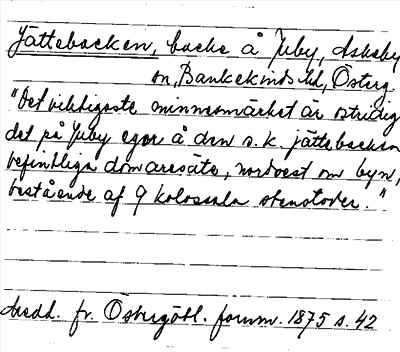 Jättebacken, backe å Juby, Askeby
sn, Bankekinds hd, Österg.
"Det viktigaste minnesmärket är ostridig
det på Juby egor å den s.k. jättebacken
befintliga domaresäte, nordvest om byn,
bestående af 9 kolossala stenstoder."
Medd. fr. Östergötl. fornm. 1875 s. 42